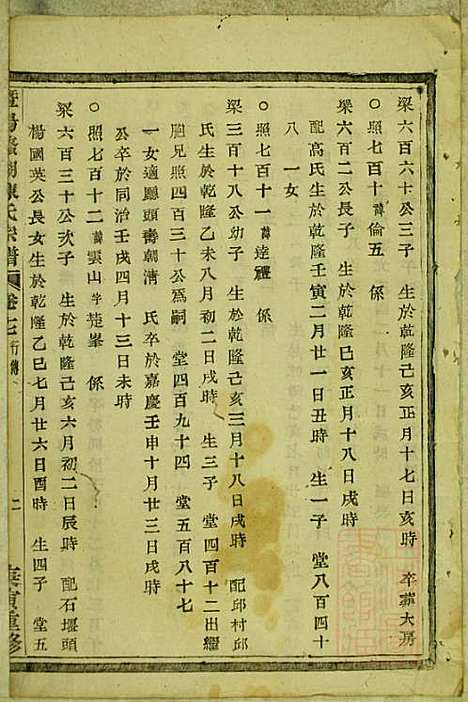 梁六百六十公三子　生於乾隆己亥正月十七日亥時　卒葬大房
○照七百十諱倫五　係
梁六百二公長子　生於乾隆己亥正月十八日戌時
配高氏生於乾隆壬寅二月廿一日丑時　生一子　堂八百四十
八　一女
○照七百十一諱達禮　係
梁三百十八公幼子　生於乾隆己亥三月十八日戌時　配邱村邱
氏生於乾隆乙未八月初二日戌時　生三子　堂四百十二出繼
胞兄照四百三十公爲嗣　堂四百九十四　堂五百八十七
一女適廳頭壽朝清　氏卒於嘉慶壬申十月廿三日未時
公卒於同治壬戌四月十三日未時
○照七百十二諱雲山字楚峯　係
梁六百三十公次子　生於乾隆己亥六月初二日辰時　配石堰頭
楊國英公長女生於乾隆乙巳七月廿六日酉時　生四子　堂五
暨陽　陳氏宗譜　卷七　行傳　二　庚寅重修